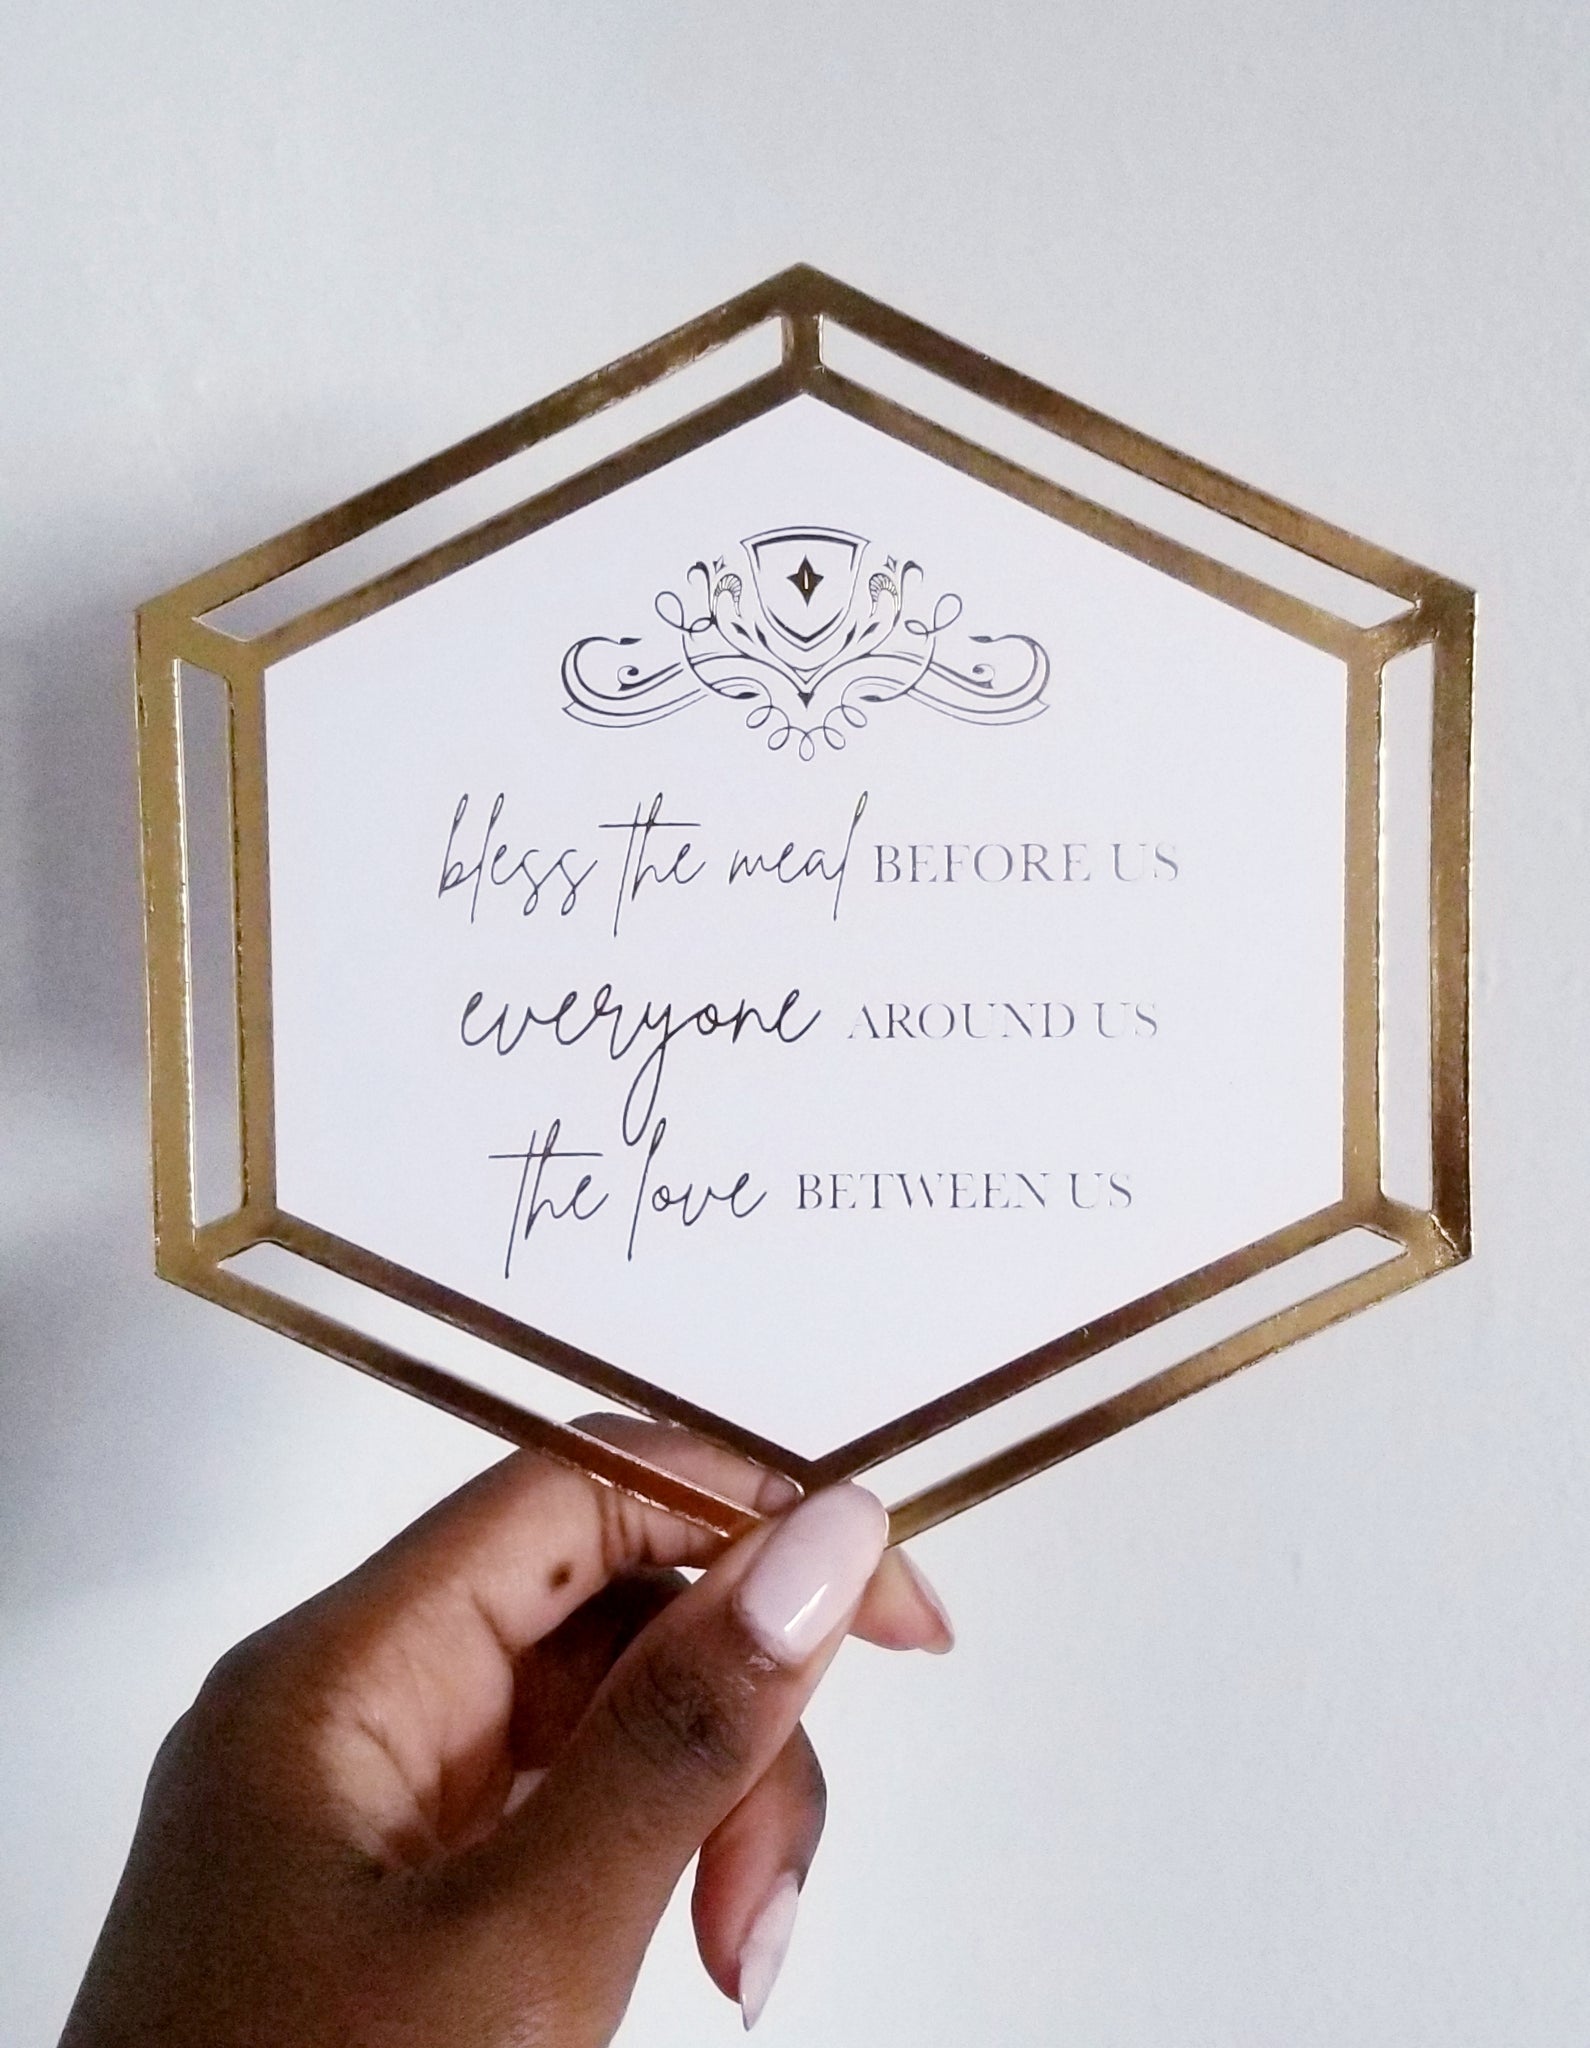 bless the meal BEFORE US
everyone AROUND US
the love BETWEEN US